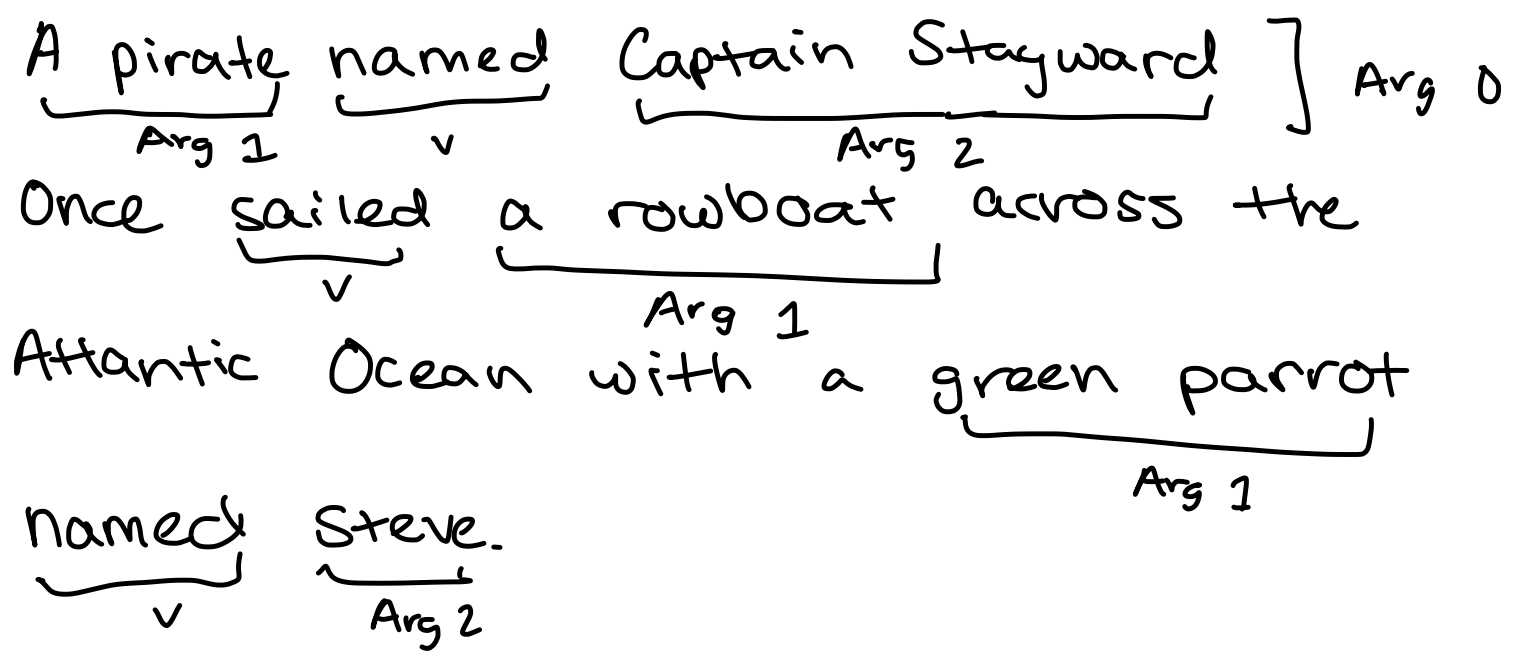 A pirate named Captain Stayward ] Arg 0
Arg 1 v Arg 2
Once sailed a rowboat across the
v Arg 1
Atlantic Ocean with a green parrot
Arg 1
named Steve.
v Arg 2